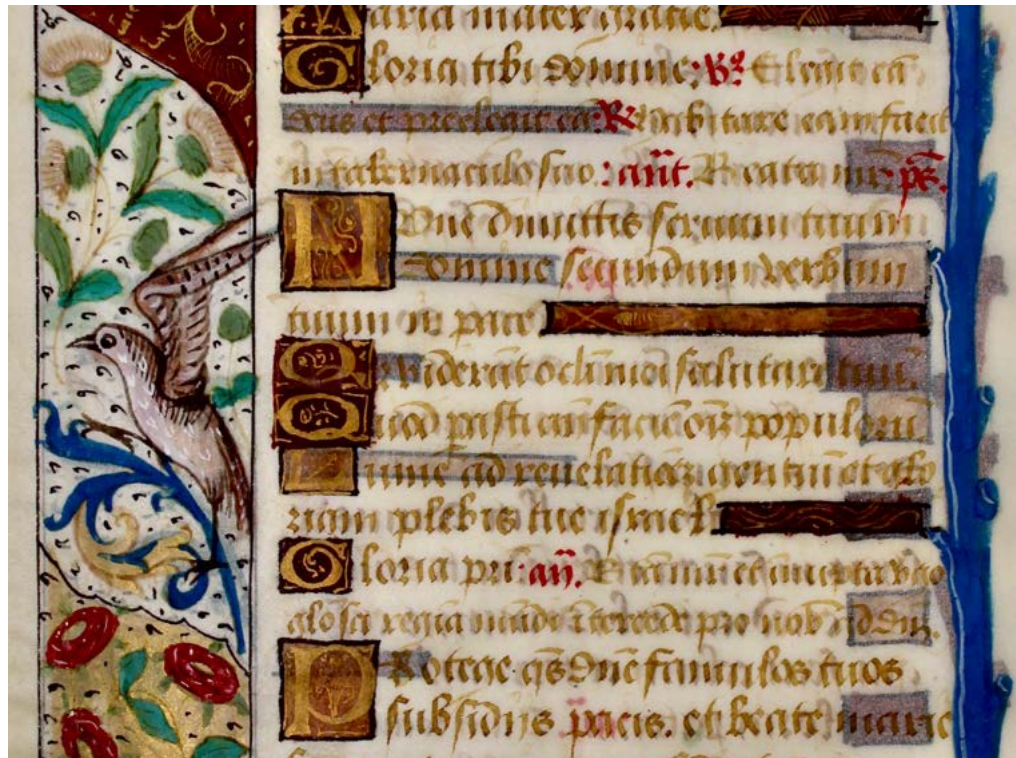 Maria mater gratie.
Gloria tibi domine: V. Elegit eã
deus et preelegit eã: R. habitare eam facit
in tabernaculo suo: añt. Beata mr̃. ps̃.
Nunc dimittis servum tuum
domine secundum verbum
tuum in pace
Quia viderũt oculi mei salutare tuũ.
Quod parasti añ faciẽ oĩm populorũ
Lumẽ ad revelatiõẽ gentiũ et glo
riam plebis tue israel
Gloria pri: añ.
gl'osa regina mundi intercede pro nob̃ ad dñz.
Protege qs dñe famulos tuos
subsidiis pacis. et beate marie